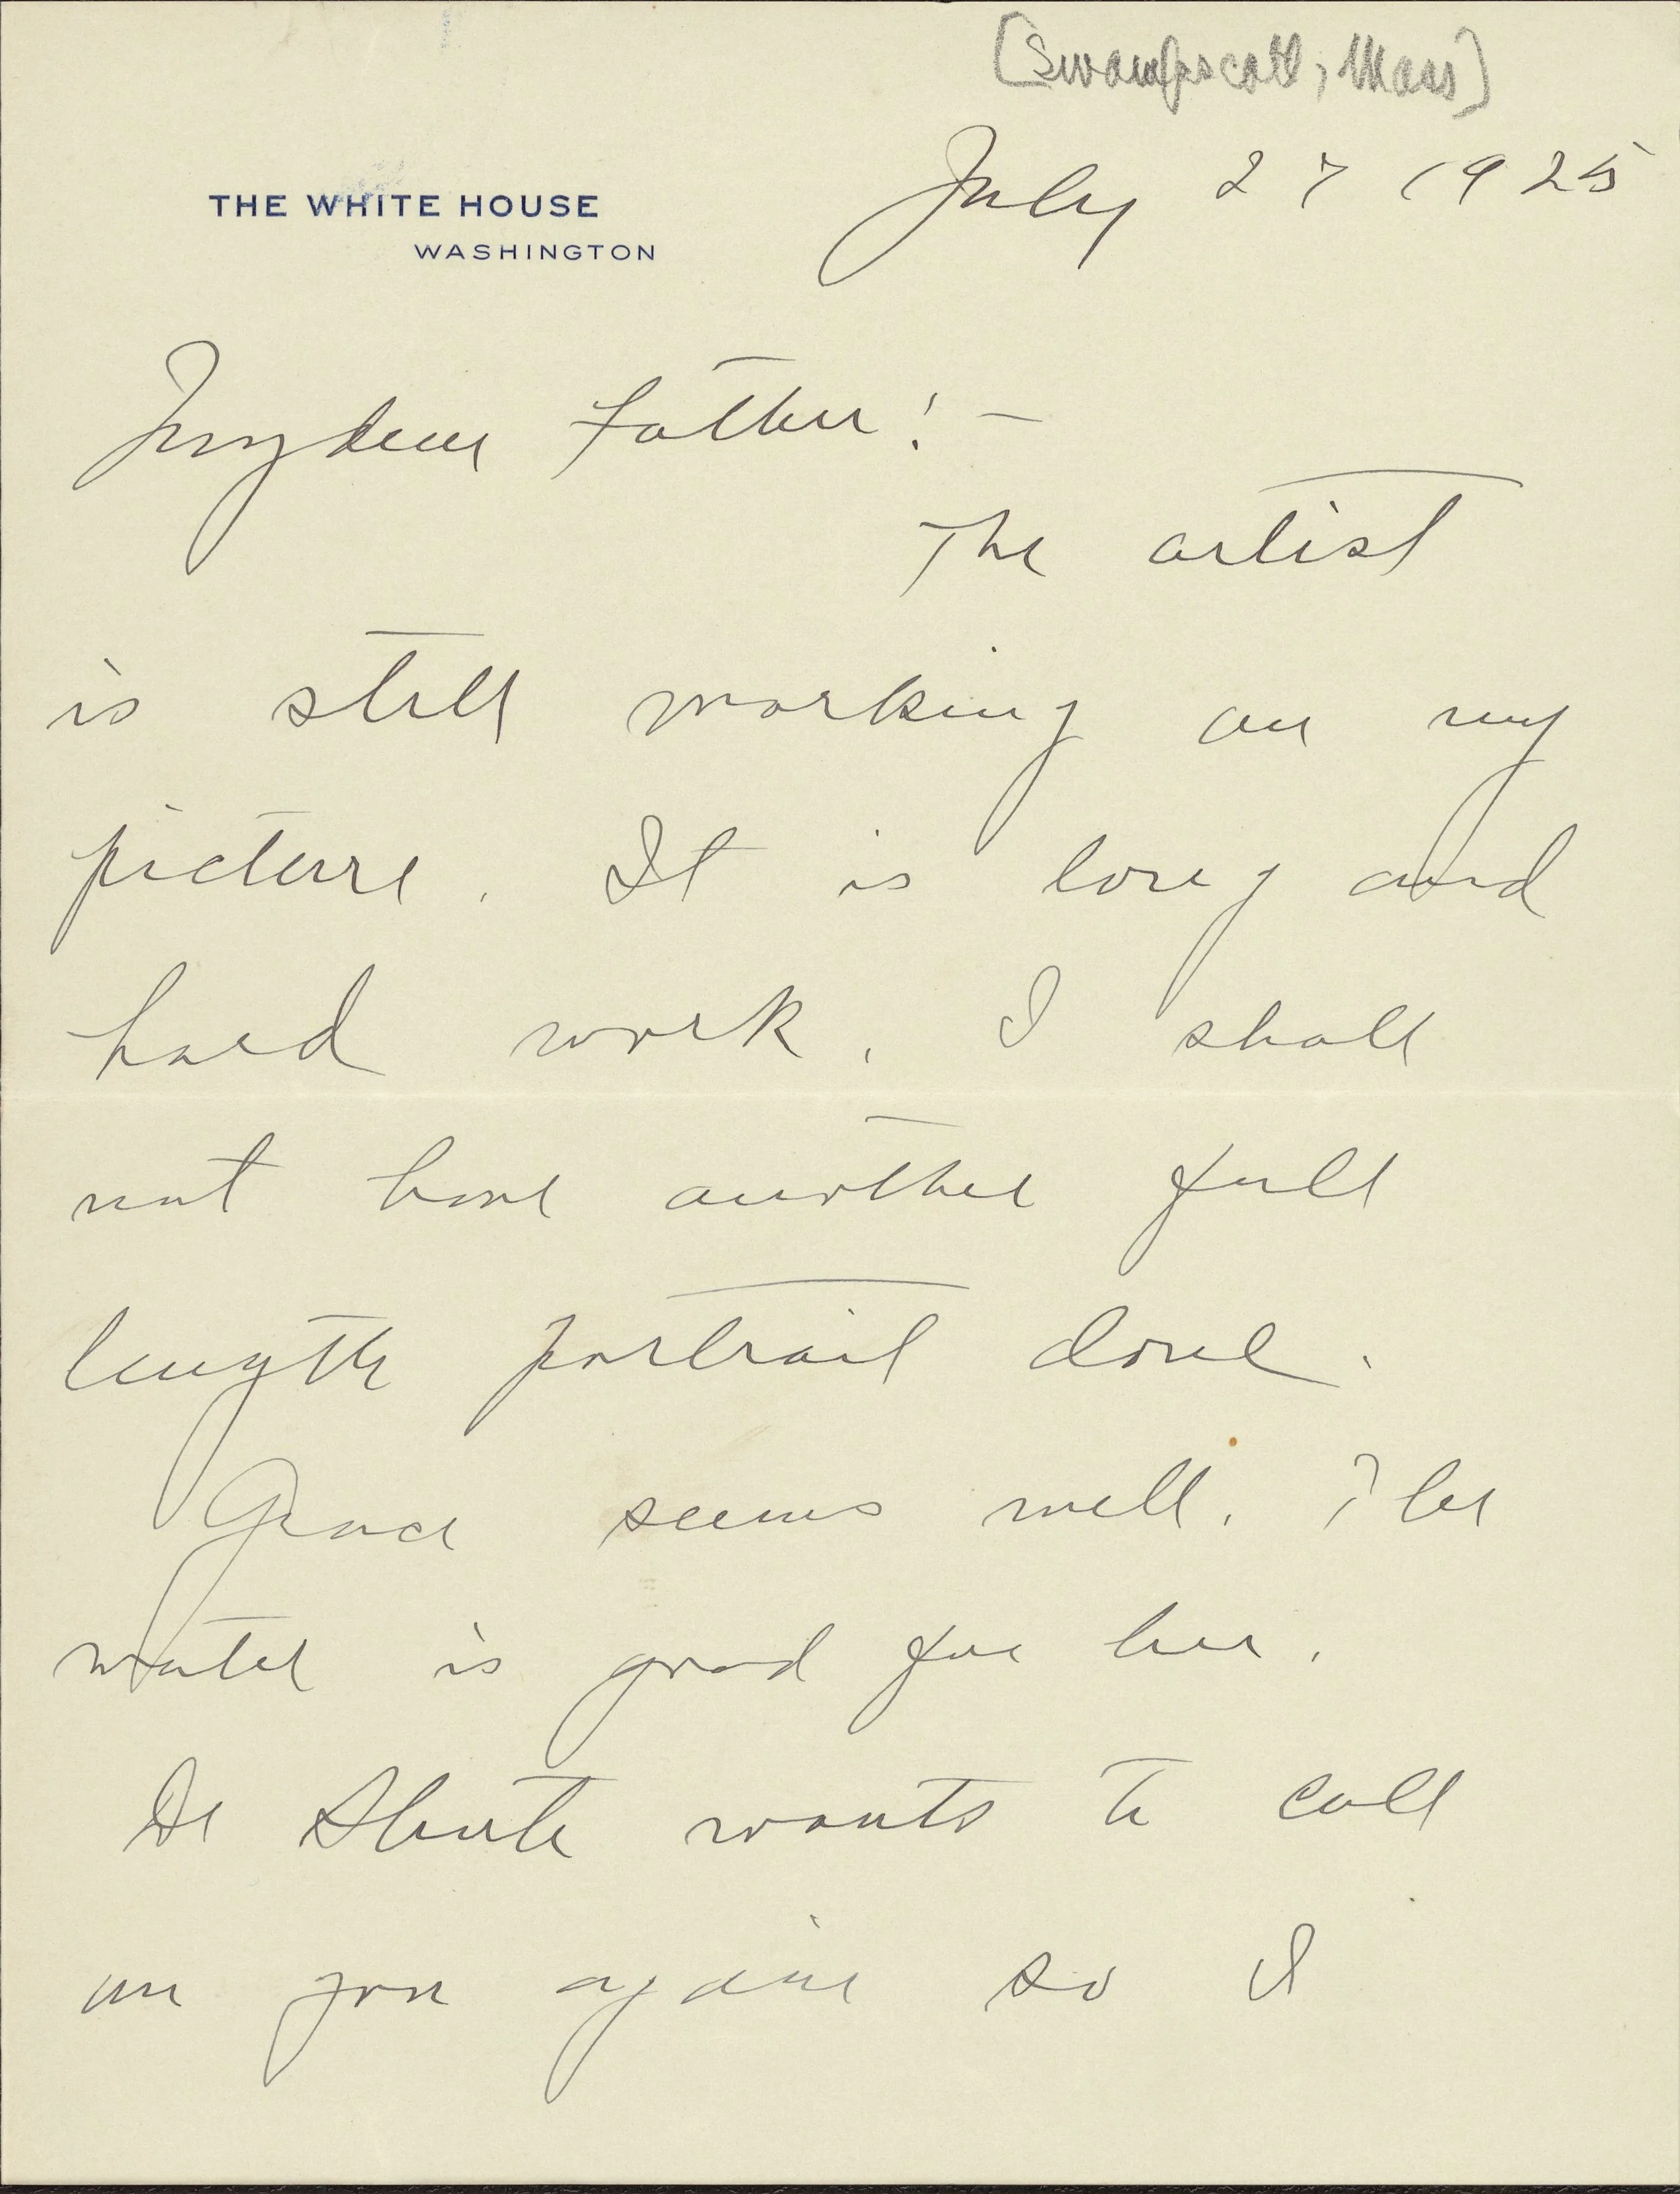 [Swampscott, Mass]
July 27 1925
THE WHITE HOUSE
WASHINGTON
My dear Father:-
The artist
is still working on my
picture. It is long and
hard work. I shall
not have another full
length portrait done.
Grace seems well. The
water is good for her.
Dr Shute wants to call
on you again so I